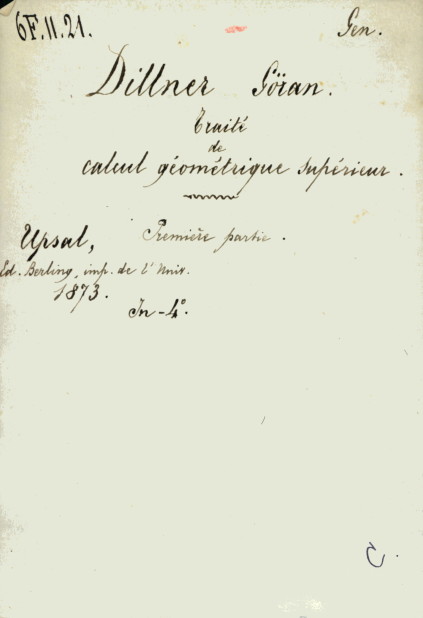 6F.11.21.
Gen.
Dillner Göran.
Traité
de
calcul géométrique supérieur.
Upsal, Première partie.
Ed. Berling, imp. de l'Univ.
1873.
In-4°.